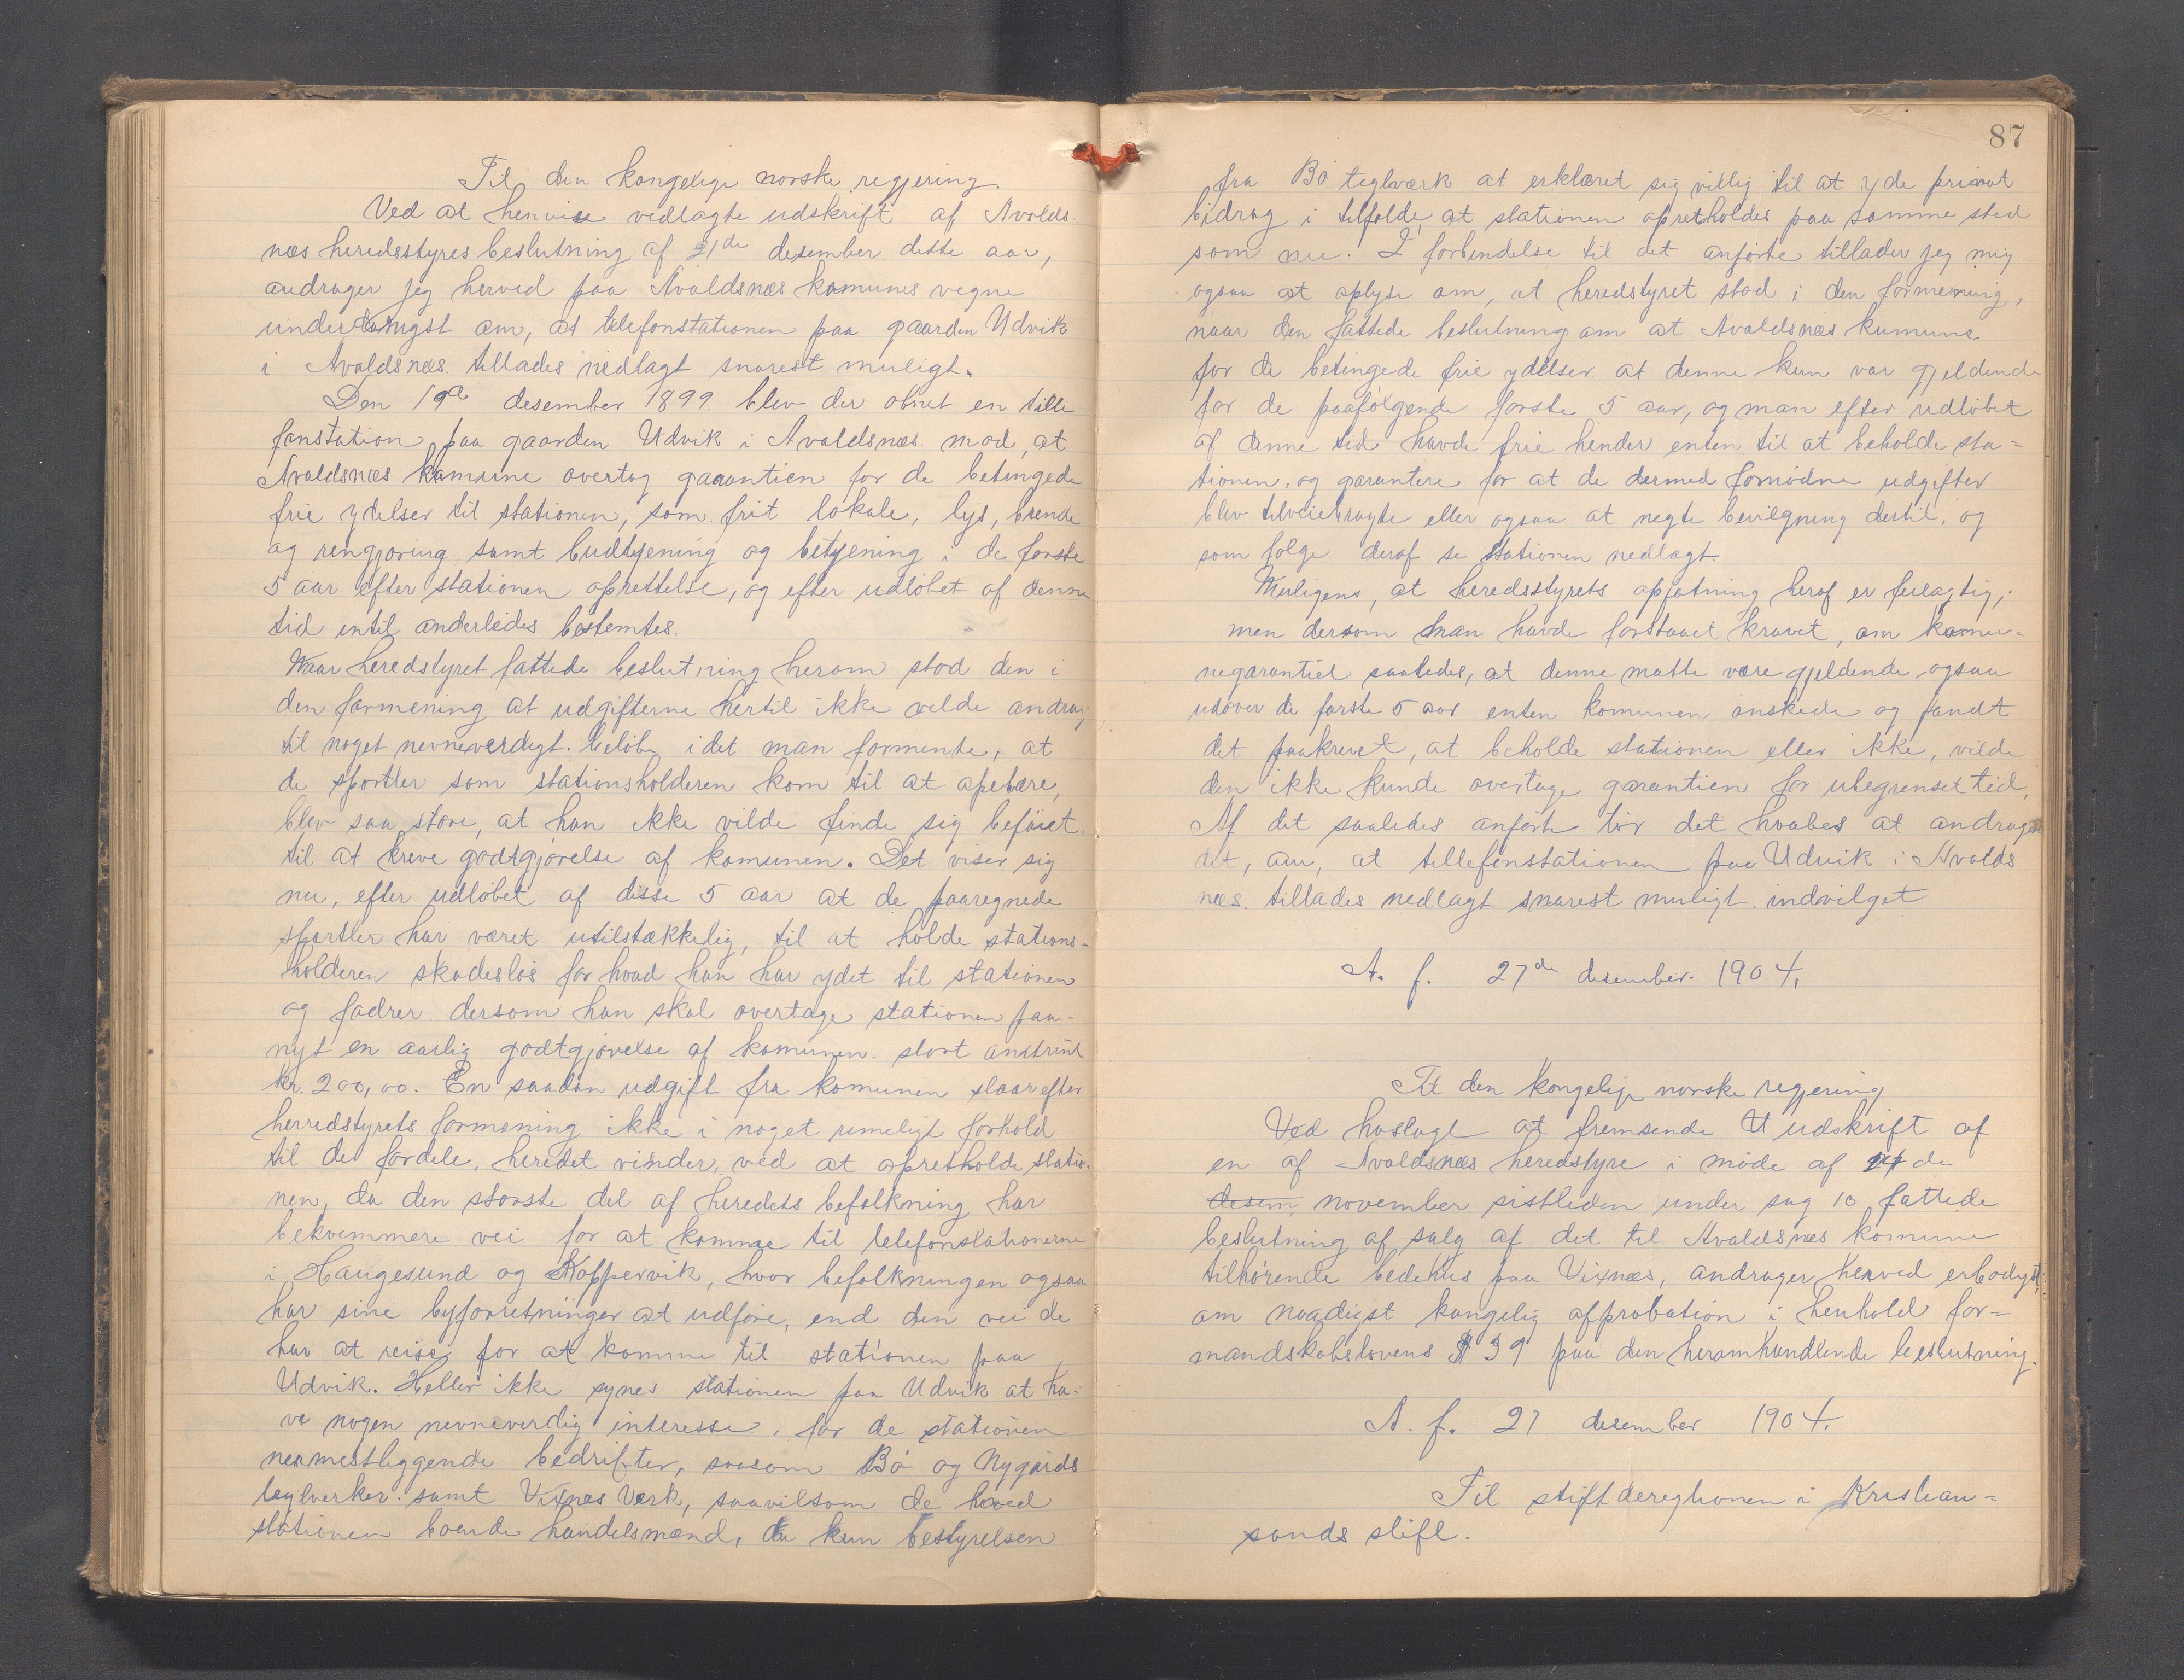 Til den kongelige norske regjering.
Ved at henvise vedlagte udskrift af Avalds-
næs heredsstyres beslutning af 21de desember dette aar,
andrager jeg herved paa Avaldsnæs komunes vegne
underdanigst om, at telefonstationen paa gaarden Udvik
i Avaldsnæs tillades nedlagt snarest muligt.
Den 19de desember 1899 blev der obnet en tille
fonstation paa gaarden Udvik i Avaldsnæs mod, at
Avaldsnæs komune overtog garantien for de betingede
frie ydelser til stationen, som frit lokale, lys, brende
og rengjøring samt budtjening og betjening i de første
5 aar efter stationen oprettelse, og efter udløbet af denne
tid intil anderledes bestemtes.
Naar heredstyret fattede beslutning herom stod den i
den formening at udgifterne hertil ikke vilde andrag
til noget nevneverdigt beløb, idet man formente, at
de sportler som stationsholderen kom til at opebære,
blev saa store, at han ikke vilde finde sig beføiet
til at kreve godtgjørelse af komunen. Det viser sig
nu, efter udløbet af disse 5 aar at de paaregnede
sportler har været utilstækkelig, til at holde stations-
holderen skadesløs for hvad han har ydet til stationen
og fodrer dersom han skal overtage stationen paa-
nyt en aarlig godtgjørelse af komunen stort
kr. 200,00. En saadan udgift fra komunen staar efter
herredstyrets formening ikke i noget rimeligt forhold
til de fordele, heredet vinder, ved at opretholde statio-
nen, da den største del af heredets befolkning har
bekvemmere vei for at komme til telefonstationerne
i Haugesund og Koppervik, hvor befolkningen ogsaa
har sine byforretninger at udføre, end den vei de
har at reise for at komme til stationen paa
Udvik. Heller ikke synes stationen paa Udvik at ha-
ve nogen nevneverdig interesse, for de stationen
nermestliggende bedrifter, saasom Bø og Nygårds
teglverker samt Vixnes Verk, saavelsom de hoved
stationen boende handelsmænd, da kun bestyrelsen
87
fra Bø teglværk at erklæret sig villig til at yde privat
bidrag i tilfælde, at stationen opretholdes paa samme sted
som nu. I forbindelse til det anførte tillader jeg mig
ogsaa at oplyse om, at heredstyret stod i den formening,
naar den fattede beslutning om at Avaldsnæs kumune
for de betingede frie ydelser at denne kun var gjeldende
for de paafølgende første 5 aar, og man efter udløbet
af denne tid havde frie hender enten til at beholde sta=
tionen, og garantere for at de dermed fornødne udgifter
blev tilveiebragte eller ogsaa at negte bevilgning dertil, og
som følge deraf se stationen nedlagt.
Muligens, at heredsstyrets opfatning heraf er feilagtig,
men dersom man havde forstaaet kravet, om komu-
negarantiel saaledes, at denne matte være gjeldende ogsaa
udover de første 5 aar enten komunen ønskede og fandt
det paakrevet, at beholde stationen eller ikke, vilde
den ikke kunde overtage garantien for ubegrenset tid,
Af det saaledes anførte tør det haabes at andragen
det, om, at tellefonstationen paa Udvik i Avalds
næs. tillades nedlagt snarest muligt indvilget
A. f. 27de desember 1904,
Til den kongelige norske regjering
Ved hoslagt at fremsende udskrift af
en af Avaldsnæs heredstyre i møde af de
desem november sistleden under sag 10 fattede
beslutning af salg af det til Avaldsnæs komune
tilhørende bedehus paa Vixnæs, andrager herved erbødigst
om naadigst kongelig approbation i henhold for=
mandskabslovens § 39 paa den heromhandlende beslutning.
A. f. 27 desember 1904.
Til stiftdereqtionen i Kristian=
sands stift.